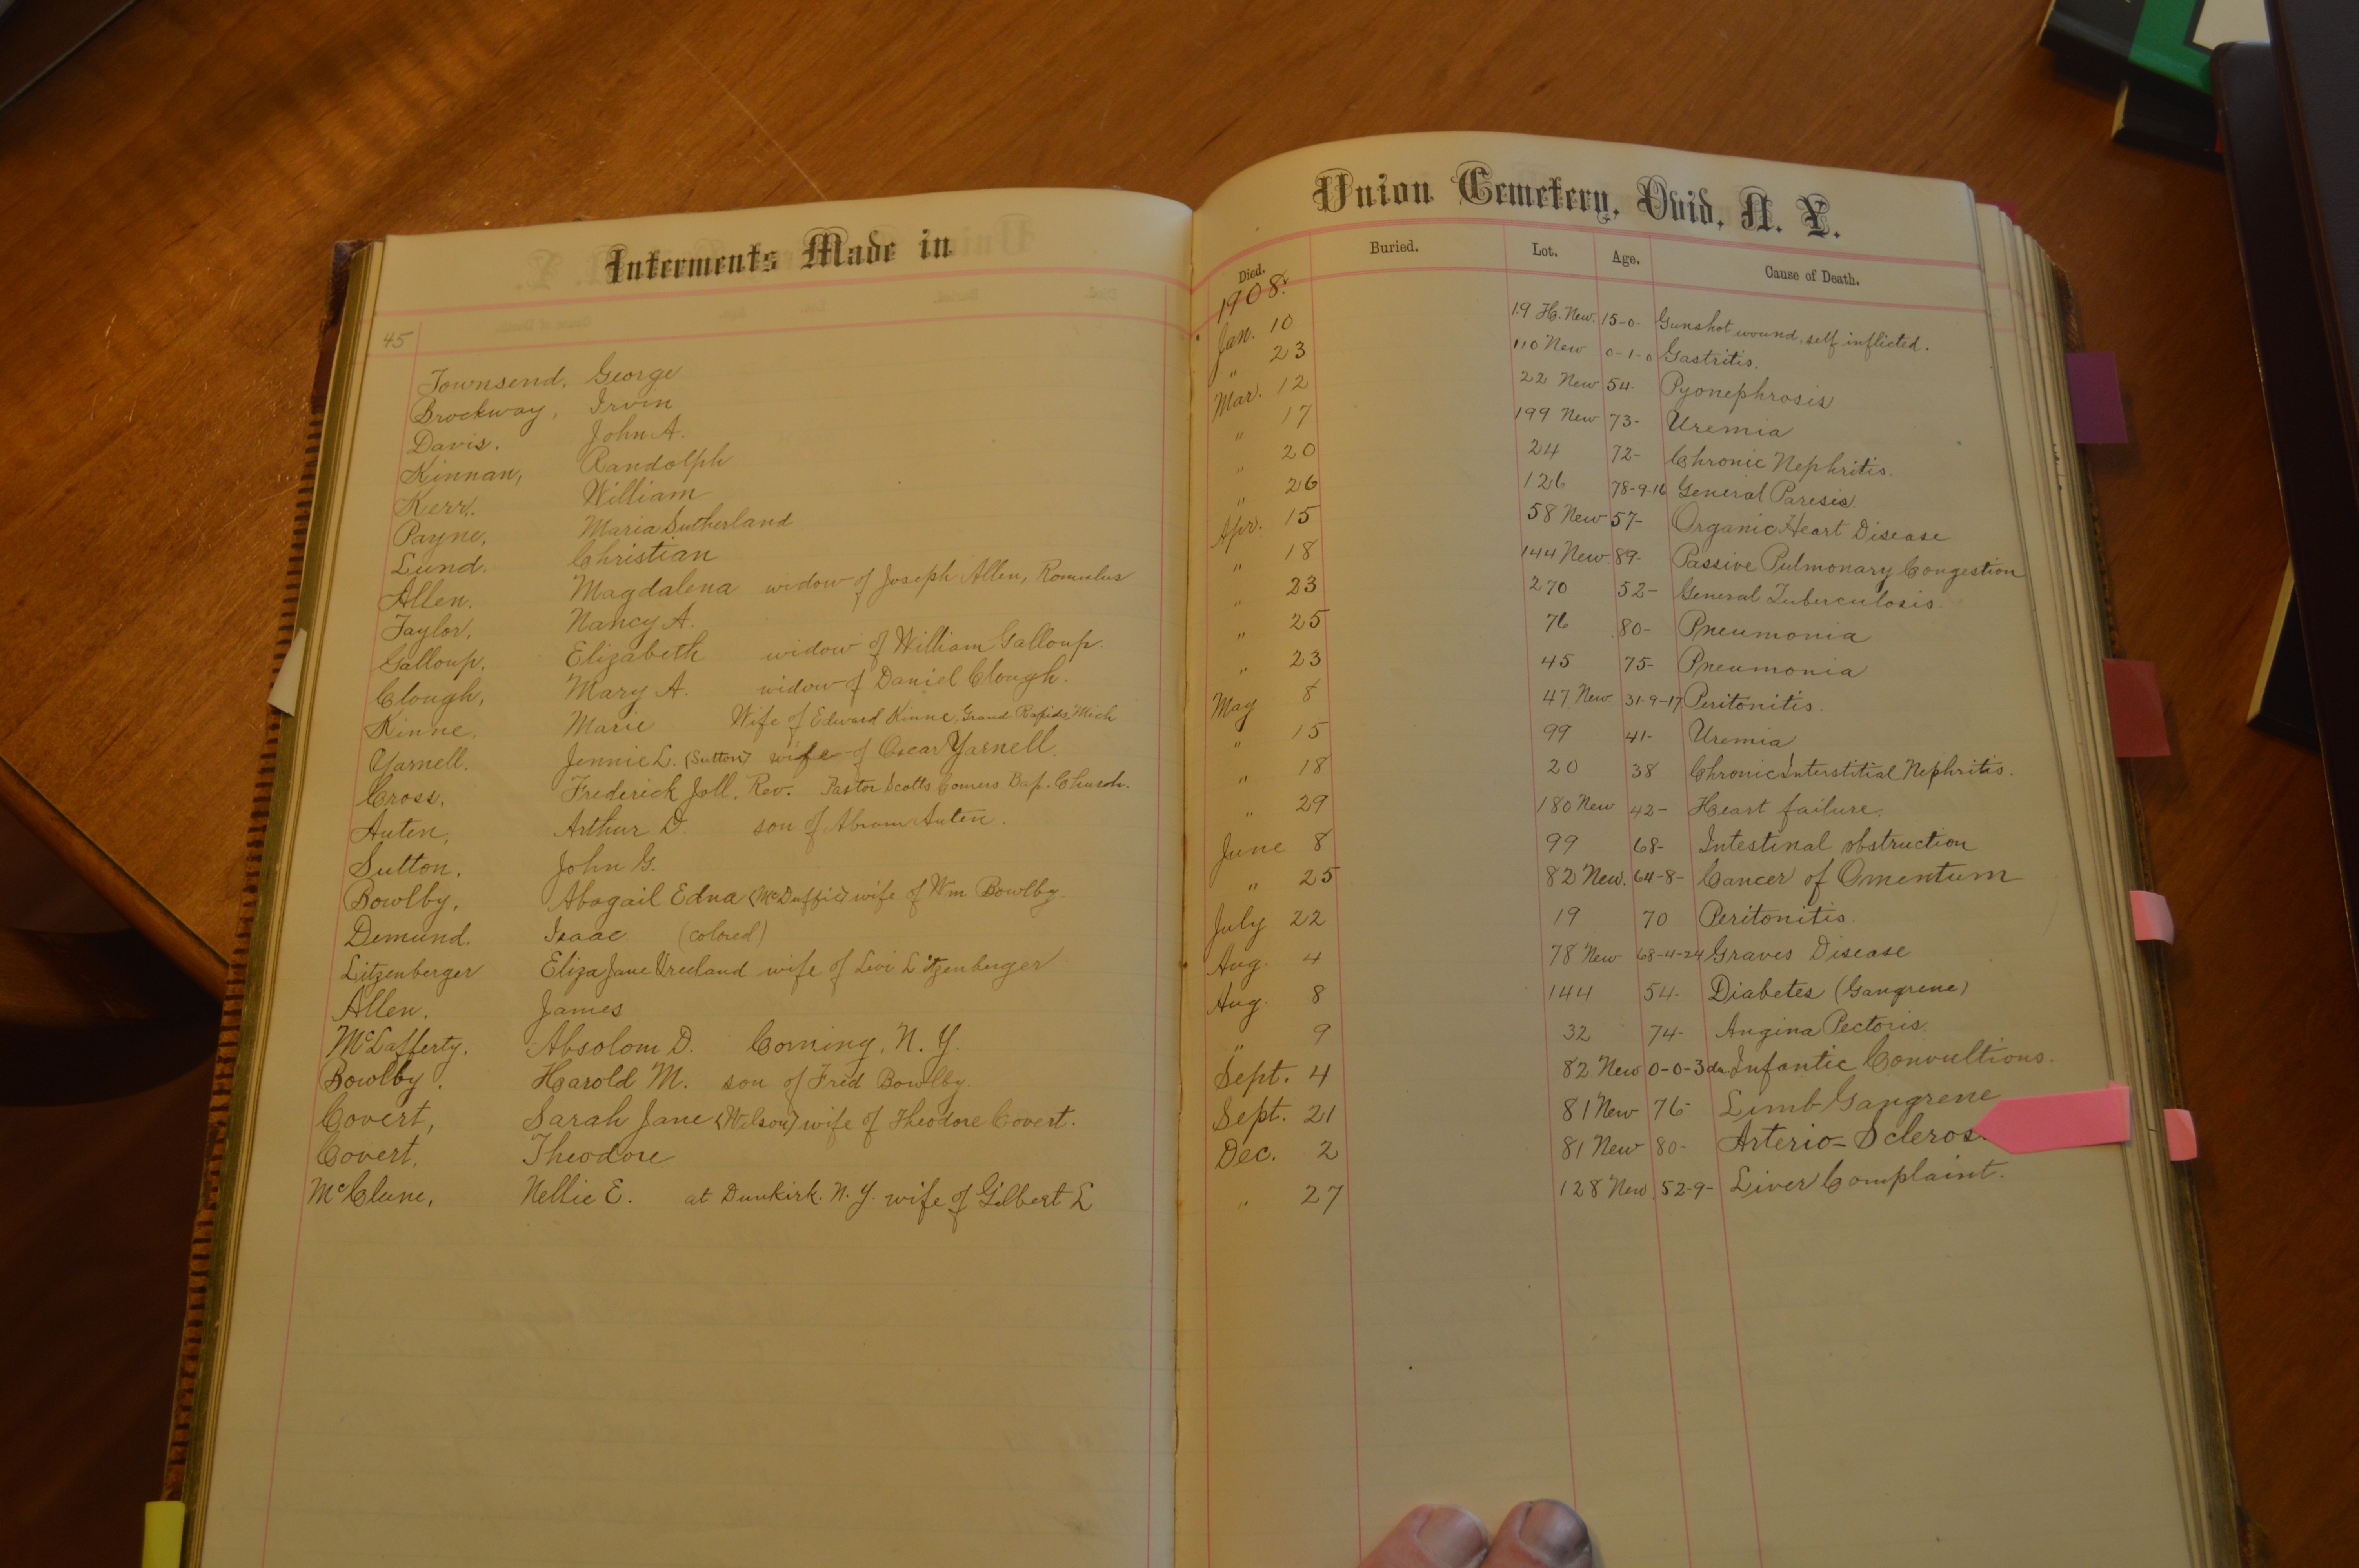 Interments Made in
45
Townsend, George
Brockway, Irvin
Davis. John A.
Kinnan, Randolph
Kerr. William
Payne, Maria Sutherland
Lund. Christian
Allen. Magdalena widow of Joseph Allen, Romulus
Taylor, Nancy A.
Galloup, Elizabeth widow of William Galloup.
Clough, Mary A. widow of Daniel Clough.
Kinne, Marie Wife of Edward Kinne, Grand Rapids, Mich
Yarnell. Jennie L. (Sutton) wife of Oscar Yarnell.
Cross, Frederick Joll, Rev. Pastor Scotts Corners Bap. Church.
Auten, Arthur D. son of Abram Auten.
Sutton, John G.
Bowlby, Abagail Edna (McDuffie) wife of Wm Bowlby.
Demund. Isaac (colored)
Litzenberger Eliza Jane Vreeland wife of Levi Litzenberger
Allen. James
McLafferty. Absolom D. Corning, N. Y.
Bowlby. Harold M. son of Fred Bowlby.
Covert, Sarah Jane (Wilson) wife of Theodore Covert.
Covert, Theodore
McClune, Nellie E. at Dunkirk. N. Y. wife of Gilbert E
Union Cemetery, Ovid, N. Y.
Died. Buried. Lot. Age. Cause of Death.
1908.
Jan. 10 19 H. New. 15-0- Gunshot wound, self inflicted.
" 23 110 New 0-1-0 Gastritis.
Mar. 12 22 New 54- Pyonephrosis
" 17 199 New 73- Uremia
" 20 24 72- Chronic Nephritis.
" 26 126 78-9-16 General Paresis.
Apr. 15 58 New 57- Organic Heart Disease
" 18 144 New 89- Passive Pulmonary Congestion
" 23 270 52- General Tuberculosis.
" 25 76 80- Pneumonia
" 23 45 75- Pneumonia
May 8 47 New. 31-9-17 Peritonitis.
" 15 99 41- Uremia
" 18 20 38 Chronic Interstitial Nephritis.
" 29 180 New 42- Heart failure.
June 8 99 68- Intestinal obstruction
" 25 82 New. 64-8- Cancer of Omentum
July 22 19 70 Peritonitis.
Aug. 4 78 New 68-4-24 Graves Disease
Aug. 8 144 54- Diabetes (Gangrene)
" 9 32 74- Angina Pectoris.
Sept. 4 82 New 0-0-3da Infantic Convultions.
Sept. 21 81 New 76- Limb Gangrene
Dec. 2 81 New 80- Arterio-Scleros
" 27 128 New 52-9- Liver Complaint.